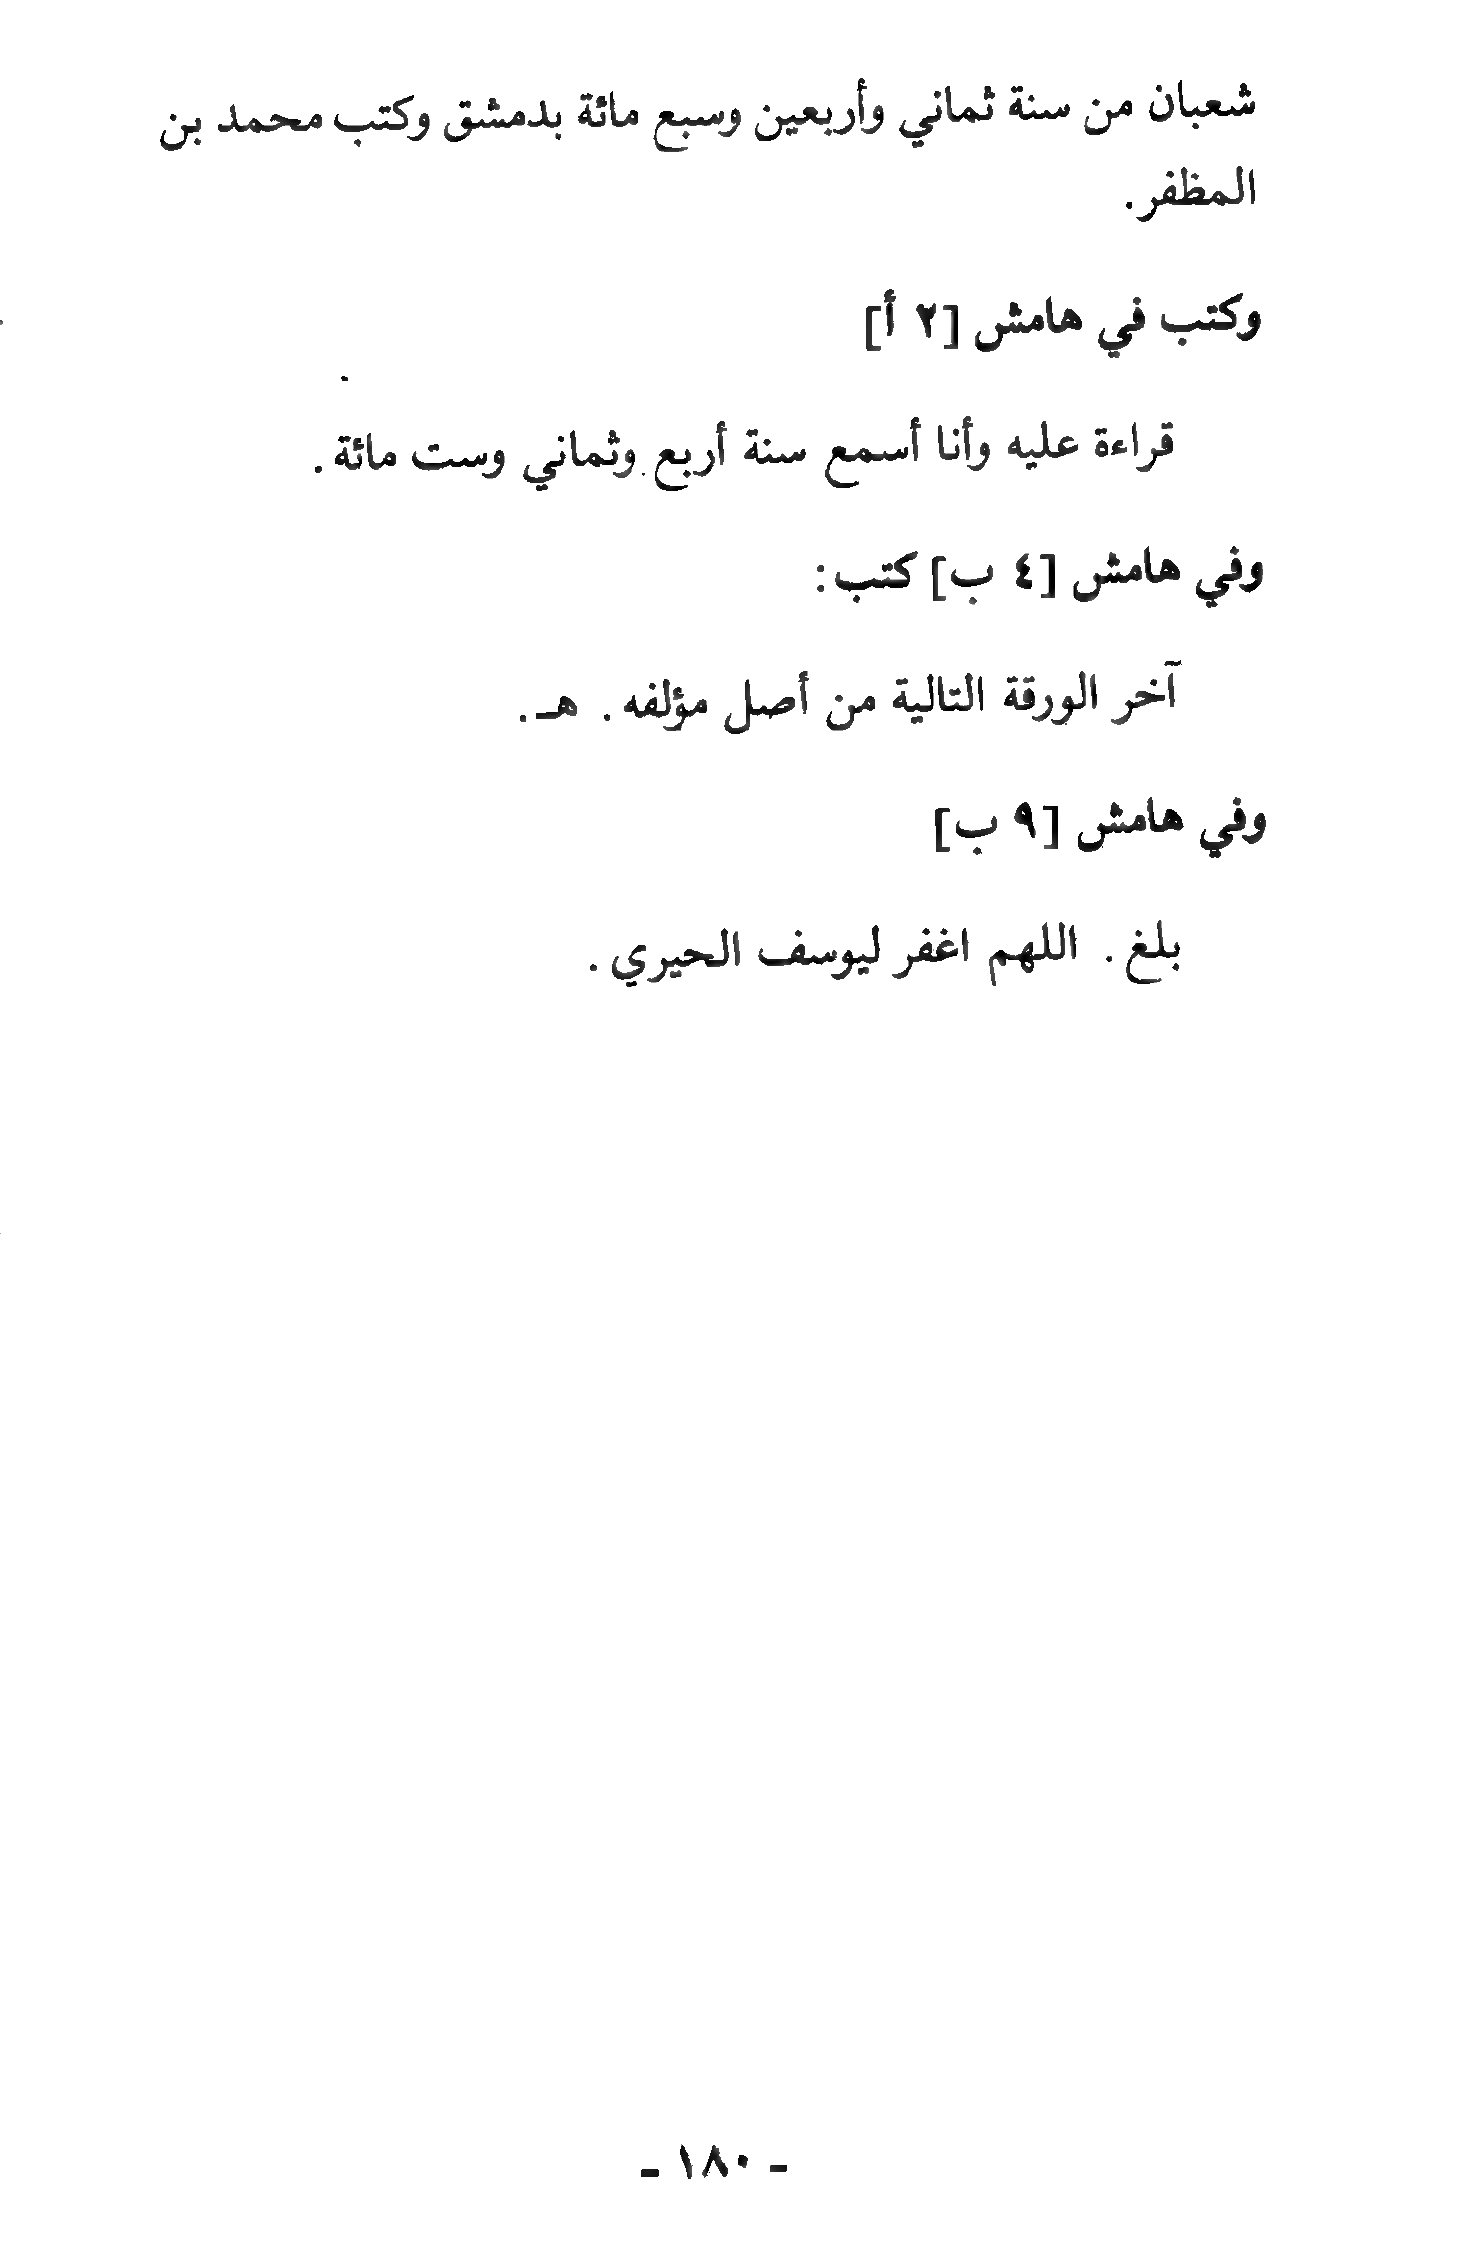 شعبان من سنة ثماني وأربعين وسبع مائة بدمشق وكتب محمد بن
المظفر.
وكتب في هامش [٢ أ]
قراءة عليه وأنا أسمع سنة أربع وثماني وست مائة.
وفي هامش [٤ ب] كتب:
آخر الورقة التالية من أصل مؤلفه. هـ.
وفي هامش [٩ ب]
بلغ. اللهم اغفر ليوسف الحيري.
- ١٨٠ -